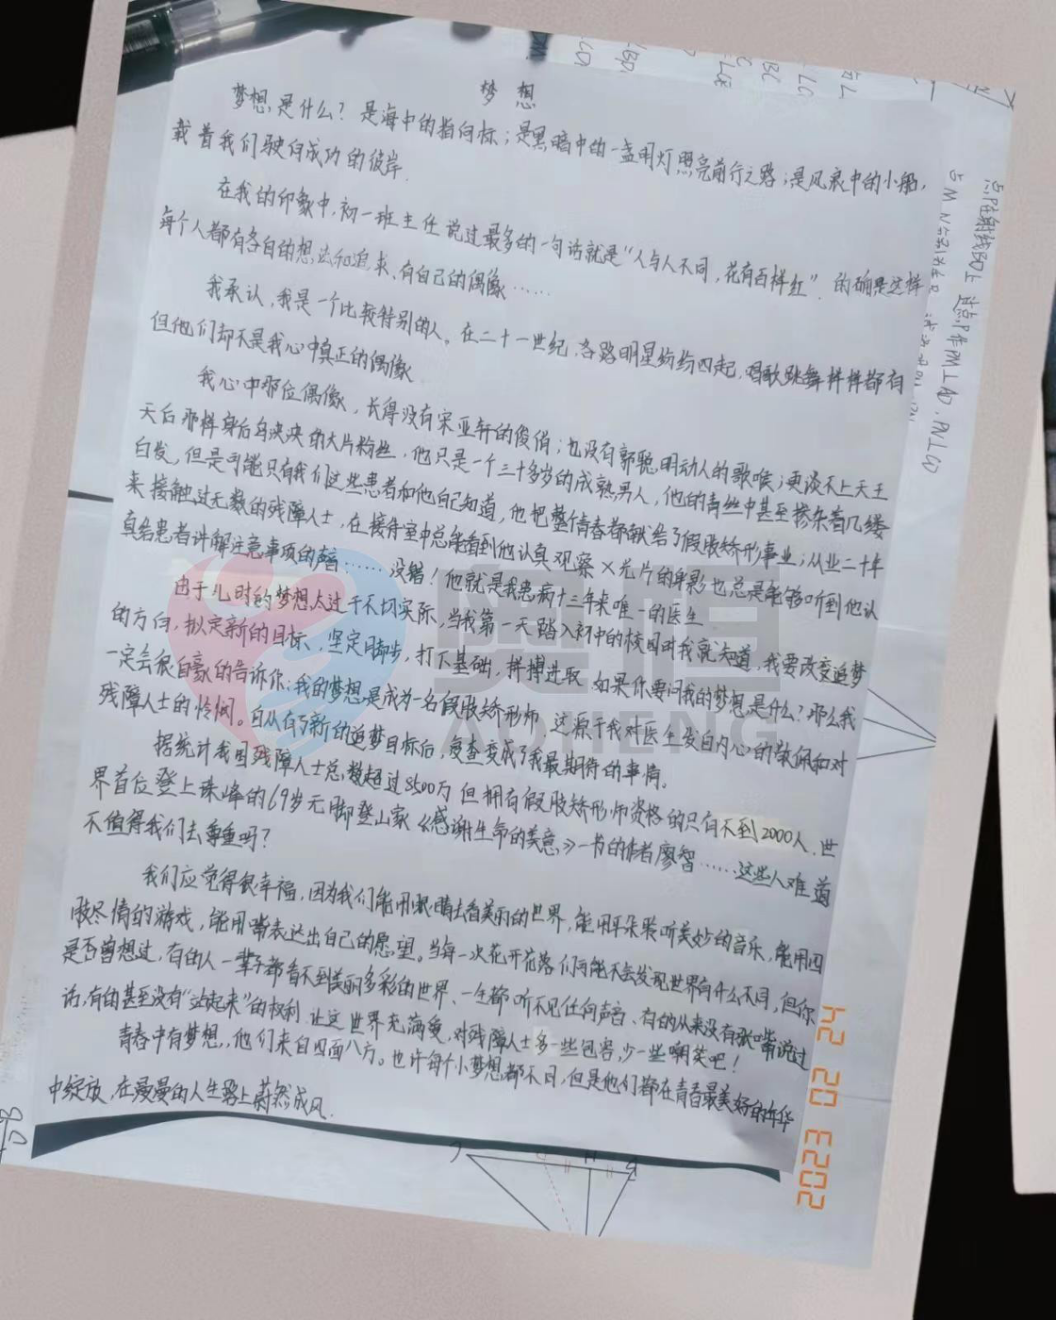 梦 想
梦想,是什么?是海中的指向标;是黑暗中的一盏明灯照亮前行之路;是风浪中的小船,
载着我们驶向成功的彼岸.
在我的印象中,初一班主任说过最多的一句话就是“人与人不同,花有百样红”.的确是这样
每个人都有各自的想法和追求、有自己的偶像……
我承认,我是一个比较特别的人。在二十一世纪,各路明星纷纷四起,唱歌跳舞样样都有
但他们却不是我心中真正的偶像.
我心中那位偶像,长得没有宋亚轩的俊俏;也没有郭聪明动人的歌喉;更谈不上天王
天后那样身后乌泱泱的大片粉丝,他只是一个三十多岁的成熟男人,他的青丝中甚至掺杂着几缕
白发,但是可能只有我们这些患者和他自己知道,他把整个青春都献给了假肢矫形事业;从业二十年
来接触过无数的残障人士,在接待室中总能看到他认真观察X光片的身影也总是能够听到他认
真给患者讲解注意事项的声音……没错!他就是我患病十三年来唯一的医生
由于儿时的梦想太过于不切实际,当我第一天踏入初中的校园时我就知道,我要改变追梦
的方向,拟定新的目标,坚定脚步,打下基础,拼搏进取.如果你要问我的梦想是什么?那么我
一定会很自豪的告诉你:我的梦想是成为一名假肢矫形师,这源于我对医生发自内心的敬佩和对
残障人士的怜悯。自从有了新的追梦目标后,复查变成了我最期待的事情。
据统计我国残障人士总数超过8500万但拥有假肢矫形师资格的只有不到2000人.世
界首位登上珠峰的69岁无脚登山家《感谢生命的美意》一书的作者廖智……这些人难道
不值得我们去尊重吗?
我们应觉得很幸福,因为我们能用眼睛去看美丽的世界,能用耳朵聆听美妙的音乐,能用四
肢尽情的游戏,能用嘴表达出自己的愿望。当每一次花开花落你可能不会发现世界有什么不同,但你
是否曾想过,有的人一辈子都看不到美丽多彩的世界、一生都听不见任何声音、有的从来没有张嘴说过
话,有的甚至没有“站起来”的权利.让这世界充满爱,对残障人士多一些包容,少一些嘲笑吧!
青春中有梦想,他们来自四面八方。也许每个小梦想都不同,但是他们都在青春最美好的年华
中绽放,在漫漫的人生路上蔚然成风.
奥恒
AOHENG
2023 02 24